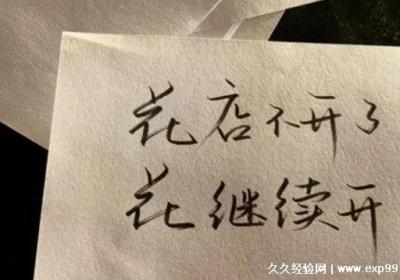 花店不开了
花继续开
久久经验网 www.exp99